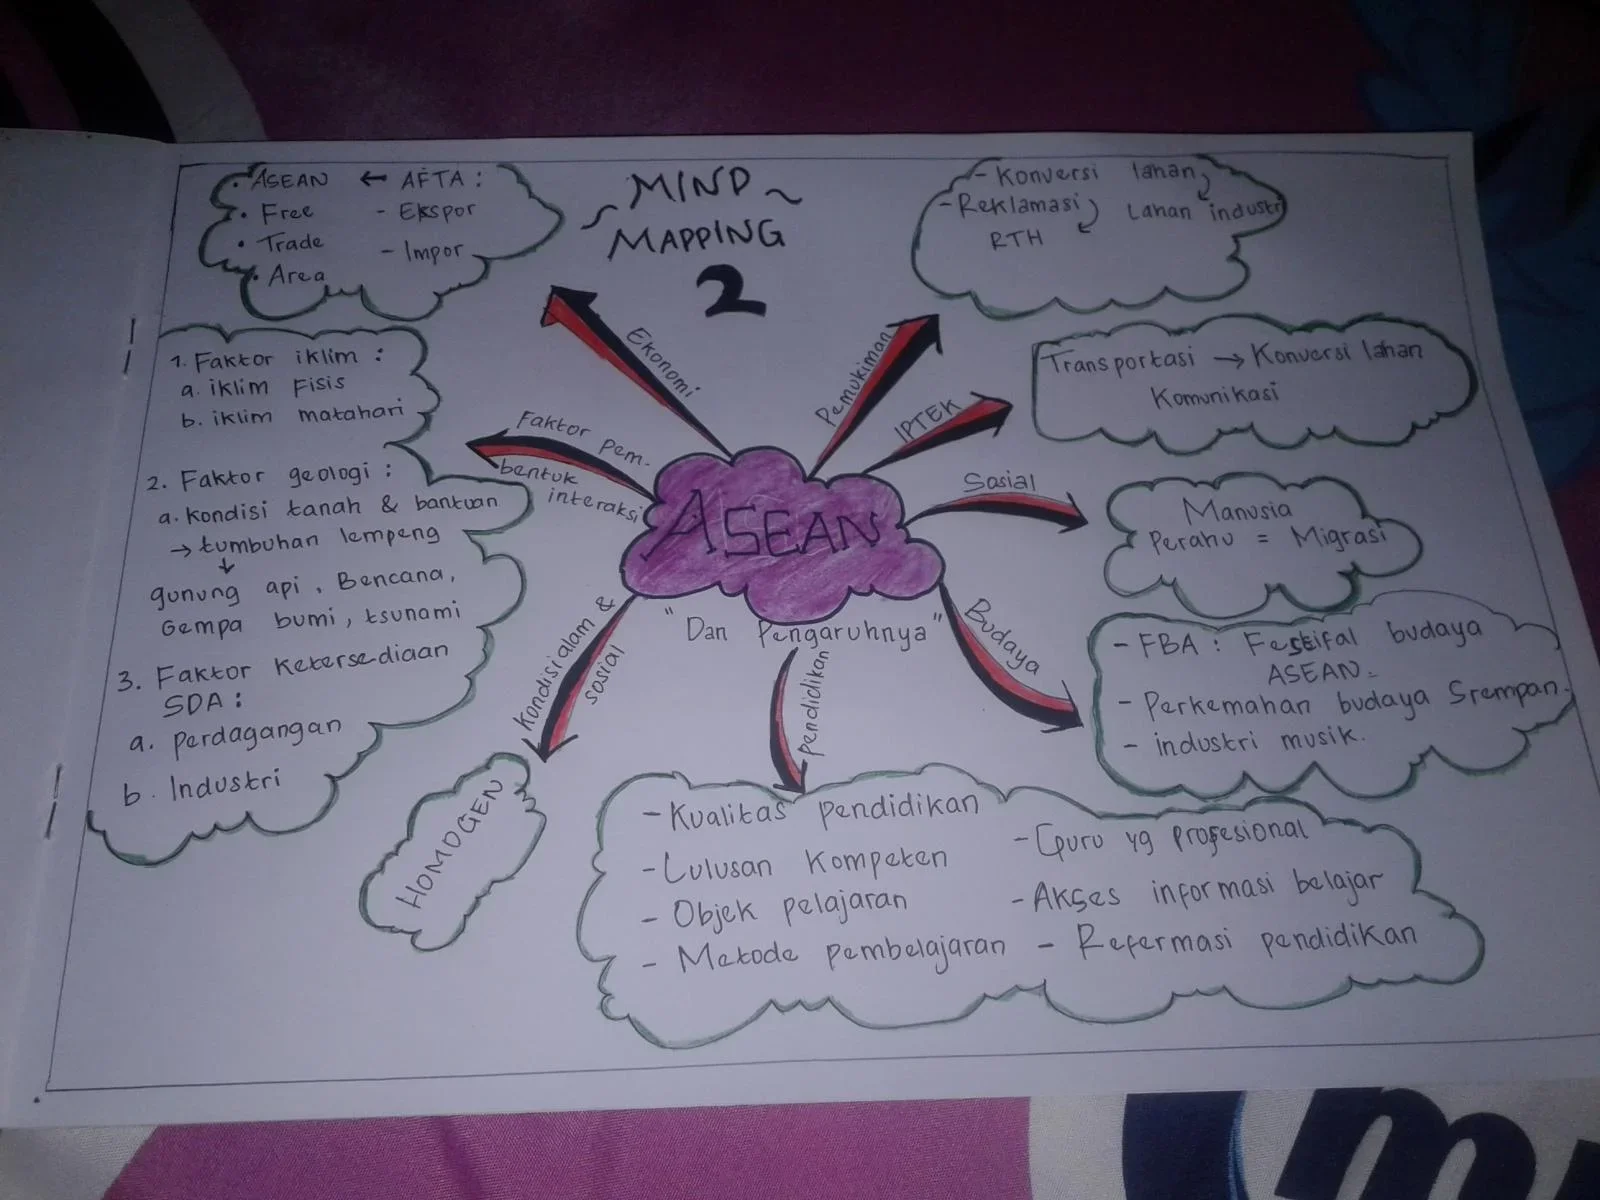 MIND
MAPPING
2
ASEAN
"Dan Pengaruhnya"
Ekonomi
• ASEAN ← AFTA :
• Free - Ekspor
• Trade - Impor
• Area
Faktor pem-
bentuk
interaksi
1. Faktor iklim :
a. iklim Fisis
b. iklim matahari
2. Faktor geologi :
a. kondisi tanah & bantuan
→ tumbuhan lempeng
↓
gunung api, Bencana,
Gempa bumi, tsunami
3. Faktor Ketersediaan
SDA :
a. perdagangan
b. Industri
Kondisi alam &
sosial
HOMOGEN
Pendidikan
- Kualitas pendidikan
- Lulusan Kompeten
- Objek pelajaran
- Metode pembelajaran
- Guru yg profesional
- Akses informasi belajar
- Refermasi pendidikan
Budaya
- FBA : Festifal budaya
ASEAN.
- Perkemahan budaya Srempan.
- industri musik.
Sosial
Manusia
Perahu = Migrasi
IPTEK
Transportasi → Konversi lahan
Komunikasi
Pemukiman
- Konversi lahan
- Reklamasi Lahan industri
RTH